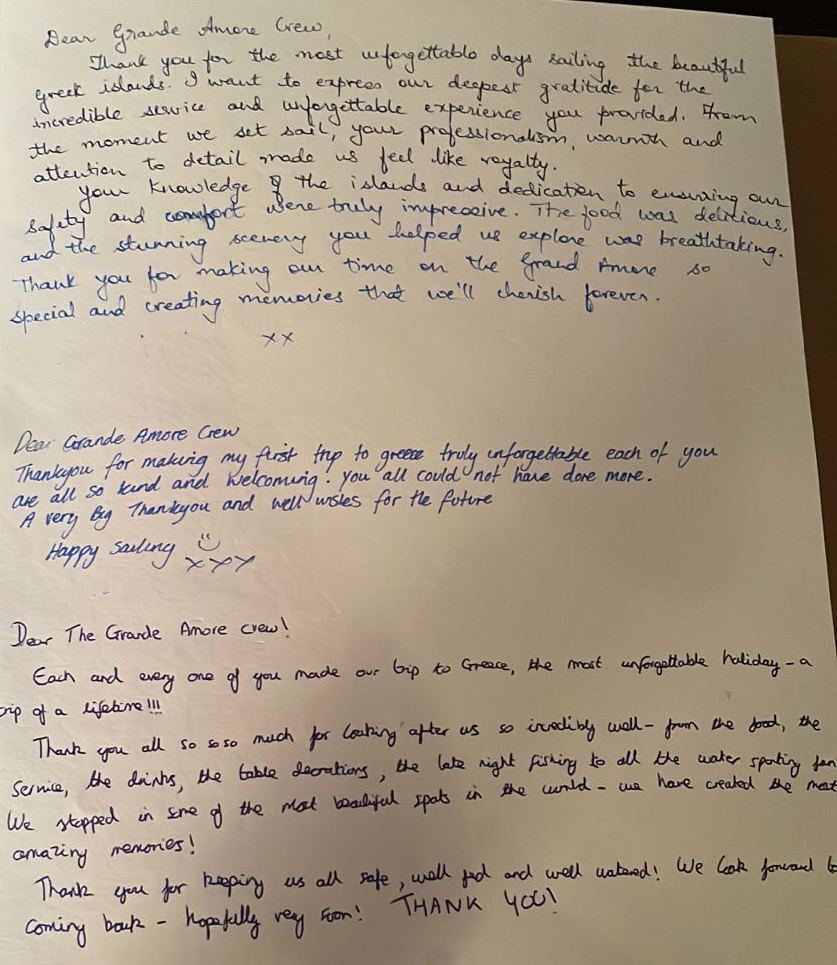 Dear Grande Amore Crew,
Thank you for the most unforgettable days sailing the beautiful
greek islands. I want to express our deepest gratitide for the
incredible service and unforgettable experience you provided. From
the moment we set sail, your professionalism, warmth and
attention to detail made us feel like royalty.
Your knowledge of the islands and dedication to ensuring our
safety and comfort were truly impressive. The food was delicious,
and the stunning scenery you helped us explore was breathtaking.
Thank you for making our time on the Grand Amore so
special and creating memories that we'll cherish forever.
xx
Dear Grande Amore Crew
Thankyou for making my first trip to greece truly unforgettable each of you
are all so kind and welcoming. you all could not have done more.
A very Big Thankyou and well wishes for the future
Happy Sailing
xxx
Dear The Grande Amore crew!
Each and every one of you made our trip to Greece, the most unforgettable holiday - a
trip of a lifetime!!!
Thank you all so so so much for looking after us so incredibly well - from the food, the
service, the drinks, the table decorations, the late night fishing to all the water sporting fun
We stopped in some of the most beautiful spots in the world - we have created the most
amazing memories!
Thank you for keeping us all safe, well fed and well watered! We look forward to
coming back - hopefully very soon! THANK YOU!